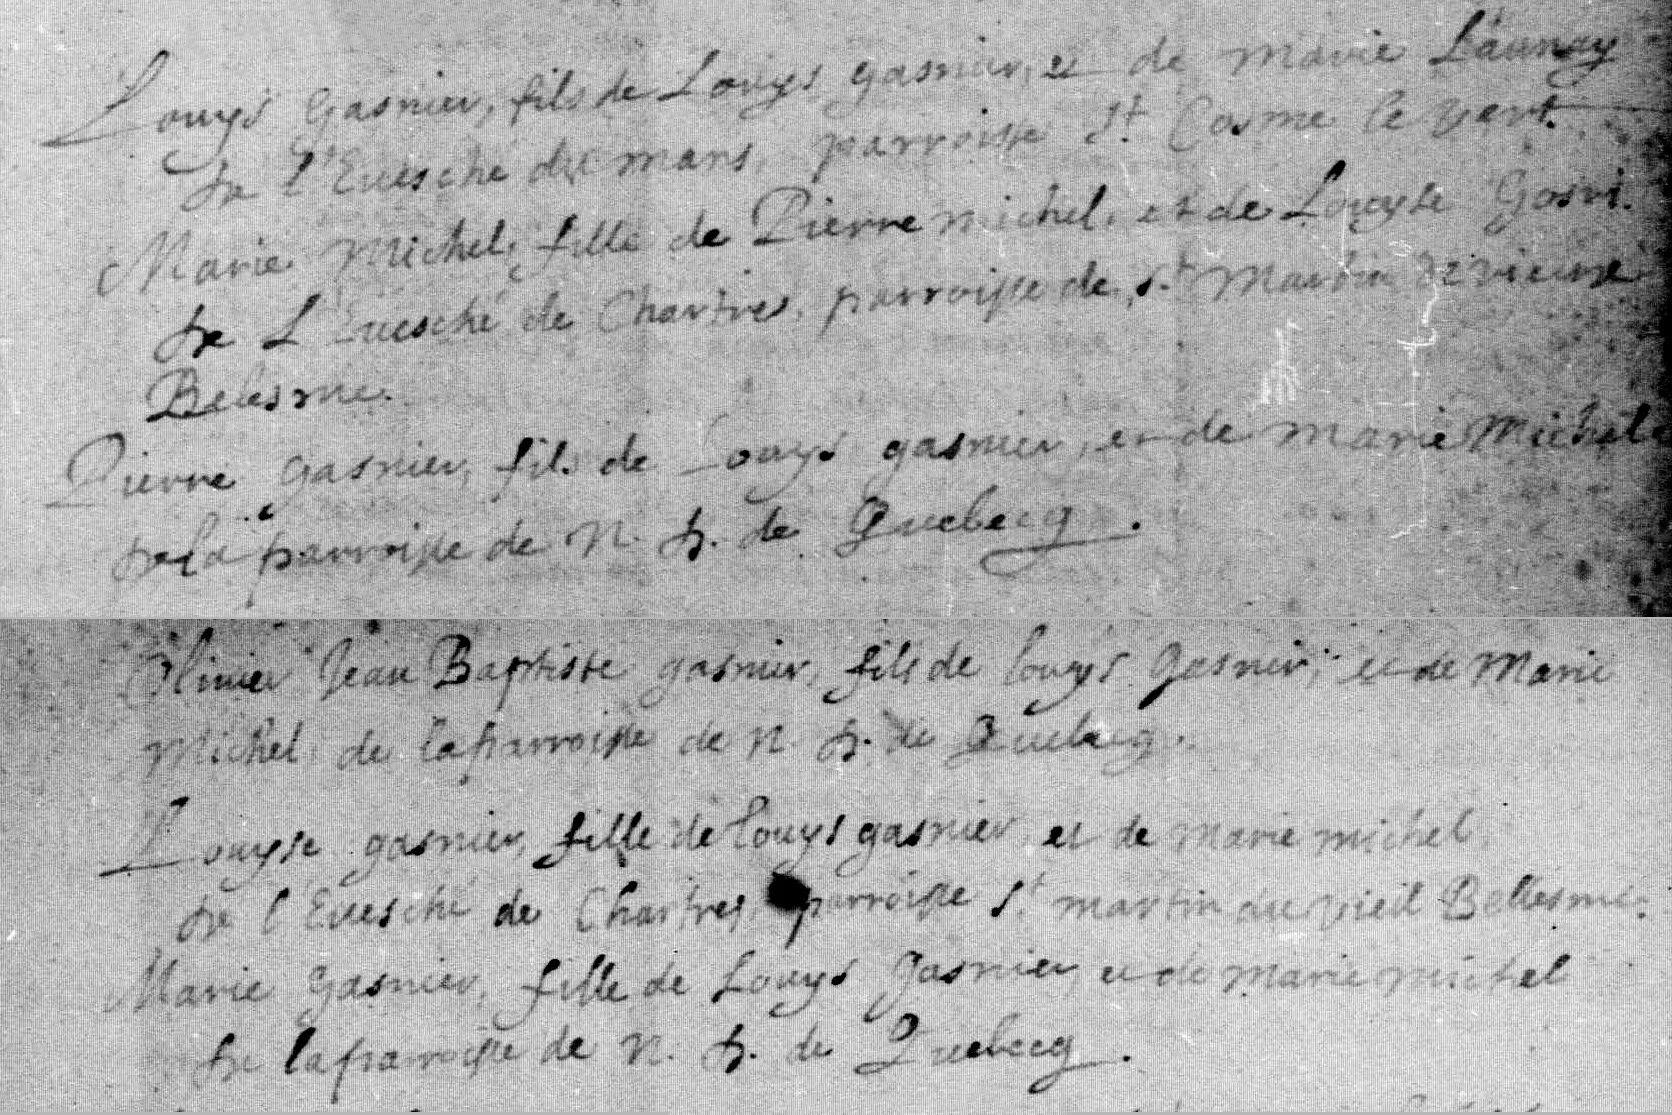 Louys Gasnier, fils de Louys gasnier, et de marie Launay
de l'Euesché du mans, parroisse St. Cosme le vert.
Marie Michel, fille de Pierre michel, et de Louyse Gosni.
de L'Euesché de Chartres, parroisse de St Martin de vieux
Belesme.
Pierre gasnier, fils de Louys gasnier, et de marie Michel
de la parroisse de N. D. de Quebecq.
Oliuier Jean Baptiste gasnier, fils de louys Gasnier, et de Marie
Michel de la parroisse de N. D. de Quebecq.
Louyse gasnier, fille de louys gasnier et de marie michel
de l'Euesché de Chartres, parroisse St martin du vieil Bellesme.
Marie Gasnier, fille de Louys Gasnier et de marie michel
de la parroisse de N. D. de Quebecq.